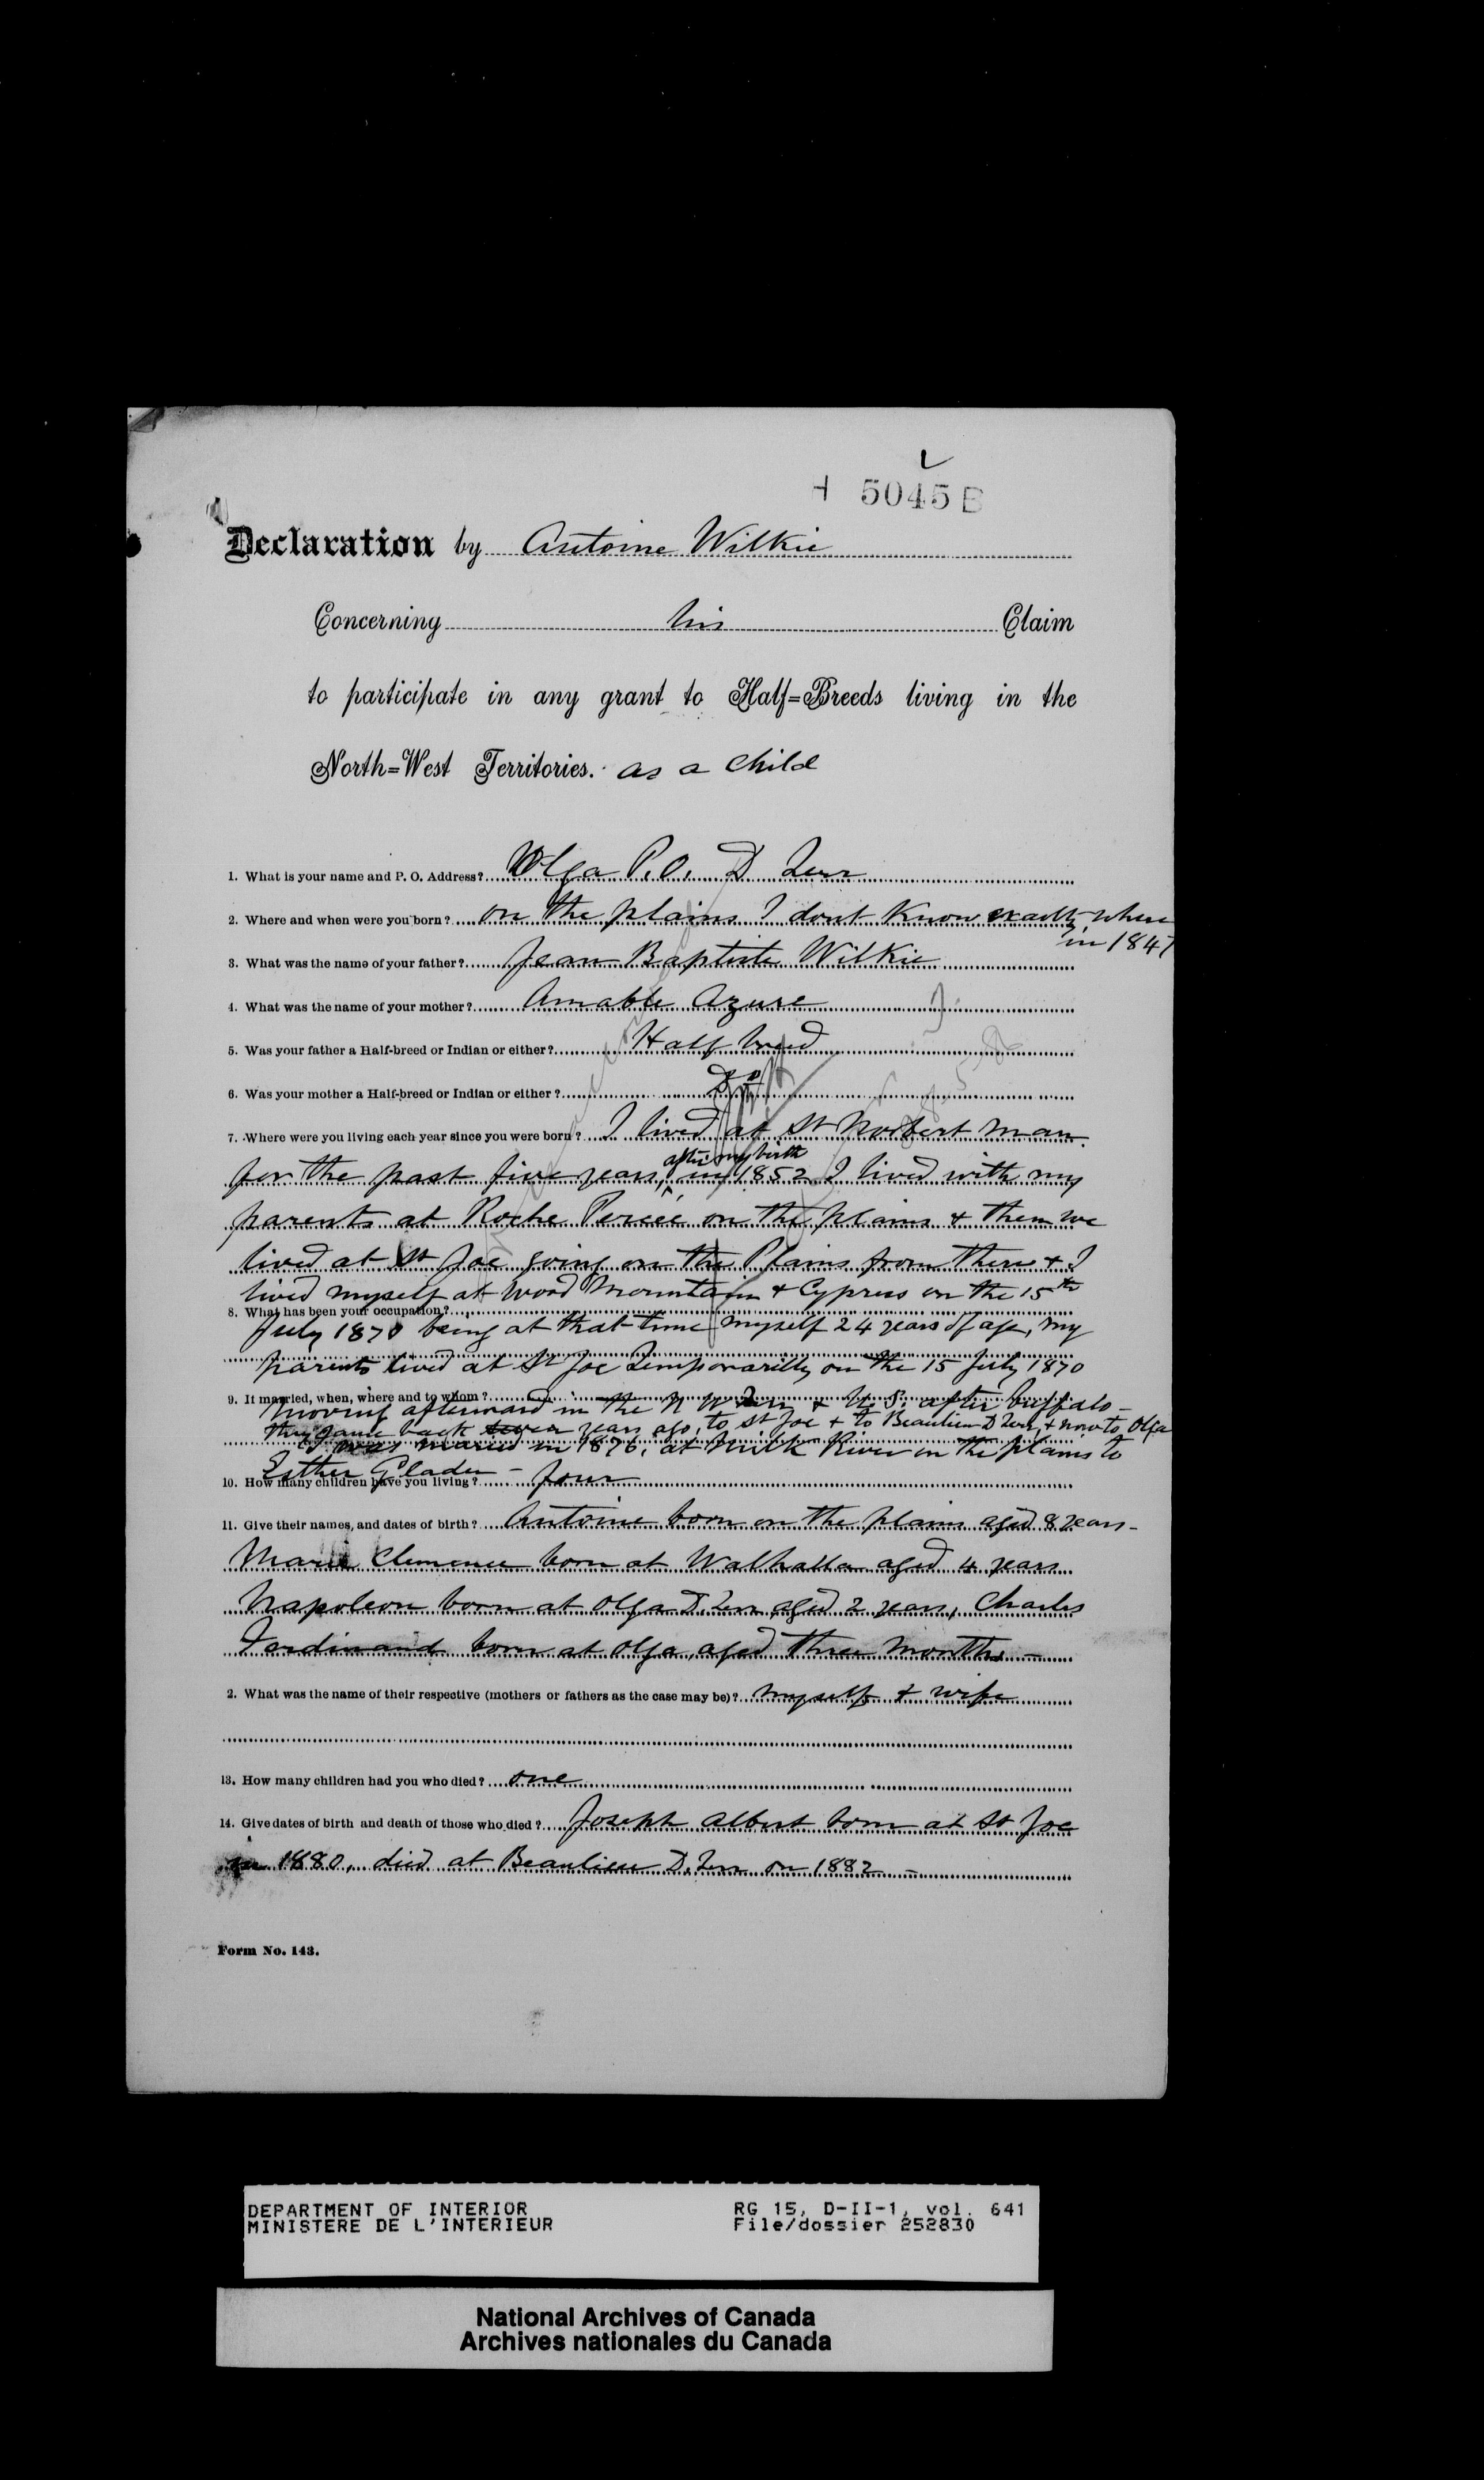 H 5045 B
Declaration by Antoine Wilkie
Concerning his Claim
to participate in any grant to Half=Breeds living in the
North=West Territories. as a Child
1. What is your name and P. O. Address? Olga P.O. D Terr
2. Where and when were you born? on the plains I dont Know exactly where
in 1847
3. What was the name of your father? Jean Baptiste Wilkie
4. What was the name of your mother? Amable Azure
5. Was your father a Half-breed or Indian or either? Half breed
6. Was your mother a Half-breed or Indian or either? Do
7. Where were you living each year since you were born? I lived at St Norbert Man.
after my birth
for the past five years, in 1852 I lived with my
parents at Roche Percée on the plains & then we
lived at St Joe going on the Plains from there & I
lived myself at Wood Mountain & Cypress on the 15th
8. What has been your occupation?
July 1870 being at that time myself 24 years of age, my
parents lived at St Joe temporarilly on the 15 July 1870
9. If married, when, where and to whom?
moving afterward in the N W Terr & U. S. after buffalo -
they came back seven years ago, to St Joe & to Beaulieu D Terr, & now to Olga
I was maried in 1876, at Milk River on the plains to
Esther Gladu -
10. How many children have you living? four
11. Give their names, and dates of birth? Antoine born on the plains aged 8 years -
Marie Clemence born at Walhalla aged 4 years
Napoleon born at Olga D. Terr aged 2 years, Charles
Ferdinand born at Olga, aged three months -
2. What was the name of their respective (mothers or fathers as the case may be)? myself & wife
13. How many children had you who died? one
14. Give dates of birth and death of those who died? Joseph Albert born at St Joe
in 1880, died at Beaulieu D. Terr on 1882 -
Form No. 143.
DEPARTMENT OF INTERIOR RG 15, D-II-1, vol. 641
MINISTERE DE L'INTERIEUR File/dossier 252830
National Archives of Canada
Archives nationales du Canada